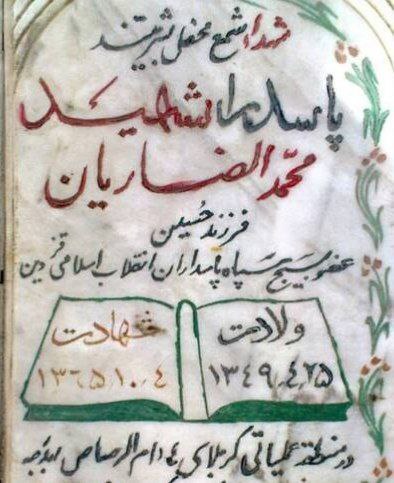 شهداء شمع محفل بشریتند
پاسدار شهید
محمد انصاریان
فرزند حسین
عضو بسیج سپاه پاسداران انقلاب اسلامی قزوین
ولادت
۱۳۴۹٫۴٫۲۵
شهادت
۱۳۶۵٫۱۰٫۴
در منطقه عملیاتی کربلای ۴ ام الرصاص